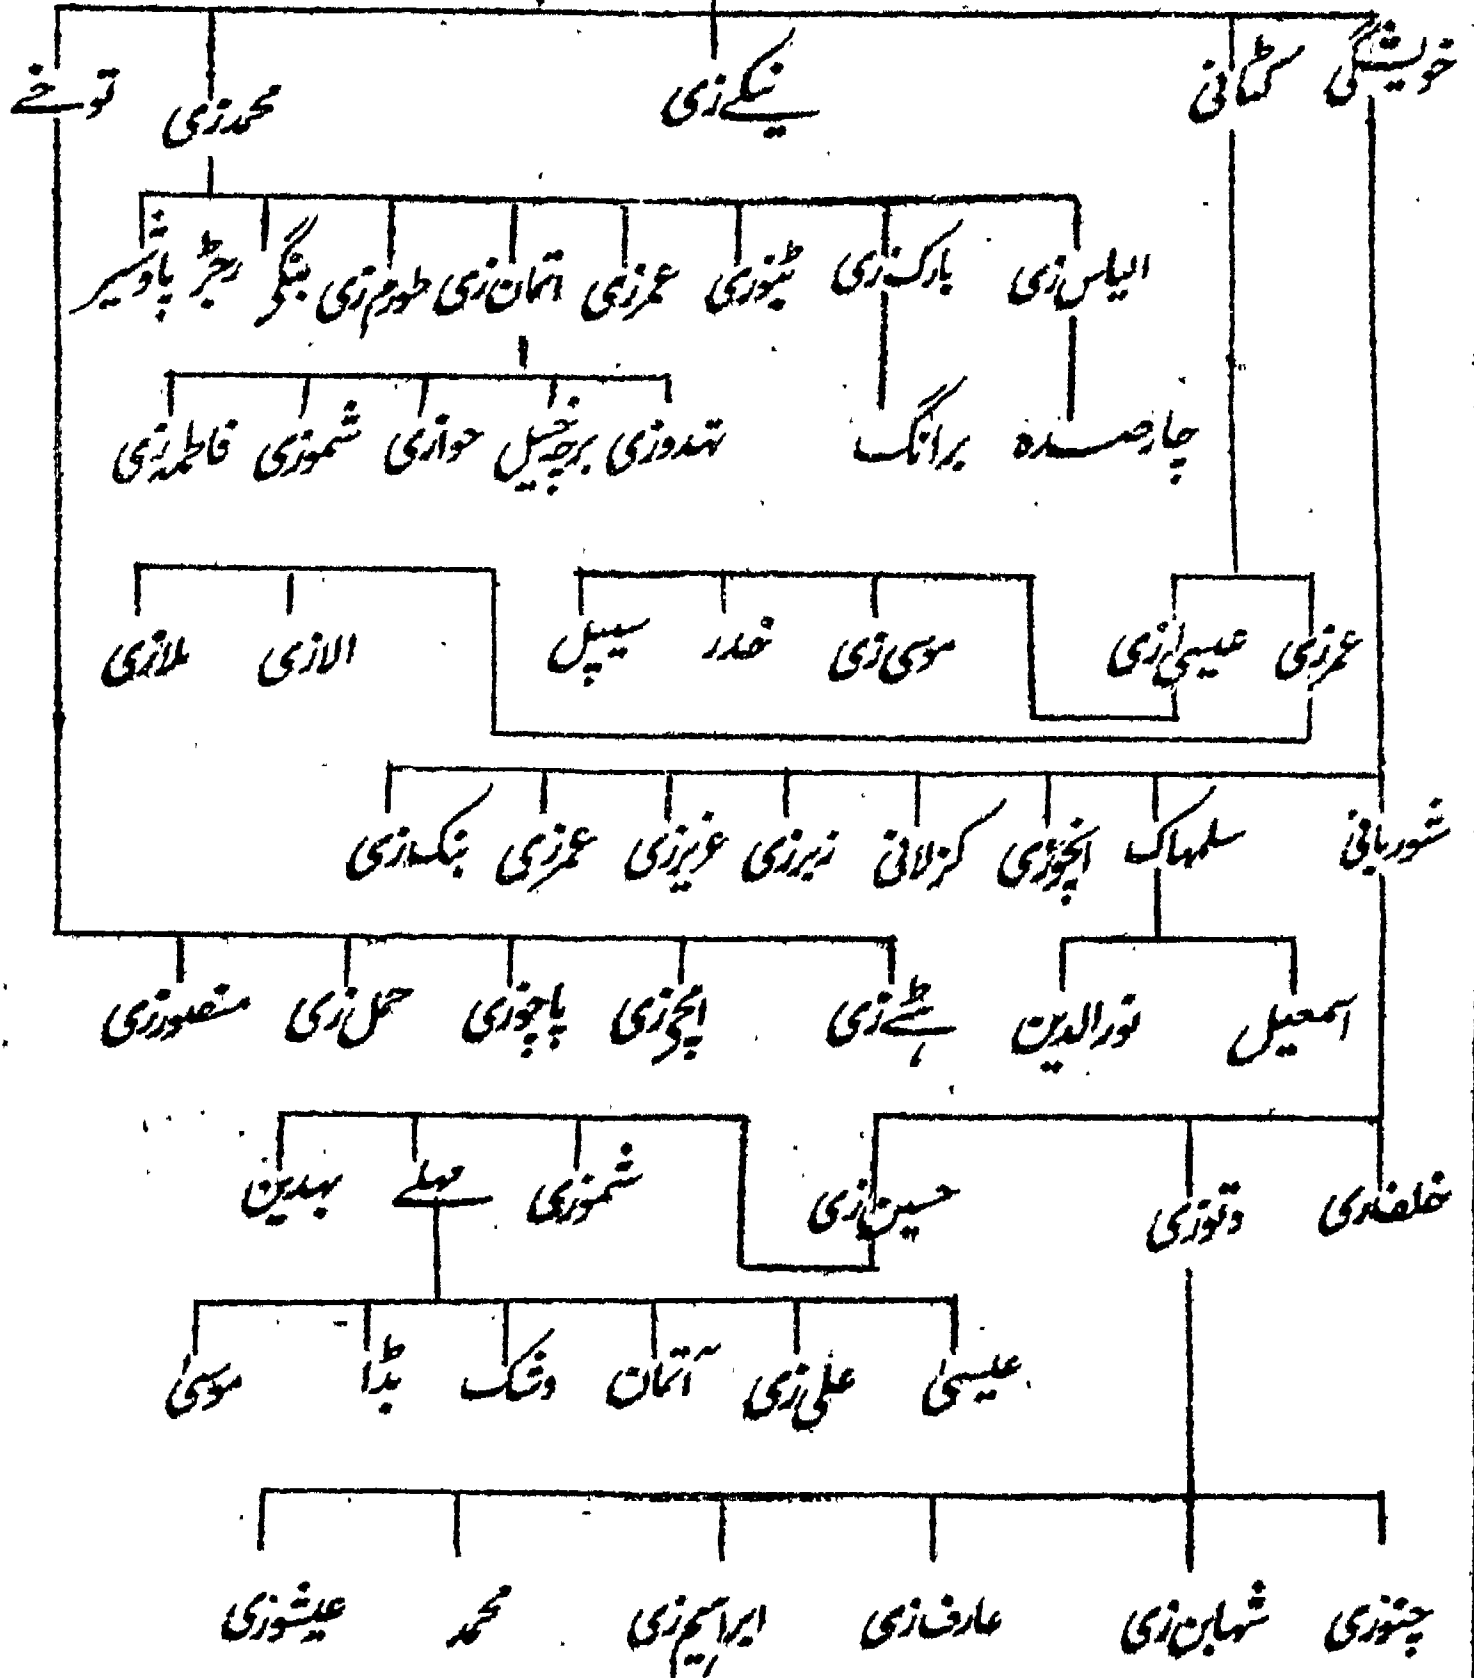 خویشگی کٹانی ینکے زی محمد زی توخے
الیاس زی بارک زی ٹپوزی عمرزی اتمان زی طورم زی بنگی رجڑ پاؤسیر
چارصدہ برانگ تہدوزی برچہ خیل حوازی شموزی فاطمہ زی
عمرزی عیسیٰ زی موسی زی خدر سیپل الازی ملازی
شوریانی سلمہاک اچوزی کزلانی زیرزی عزیزی عمرزی بنک زی
اسمعیل نورالدین ہٹے زی اچی زی پاچوزی حمل زی منصورزی
خلف زی وتوزی حسین زی شموزی مہلے بہدین
عیسیٰ علی زی آتمان وشک بڈا موسیٰ
چنوزی شہابن زی عارف زی ابراہیم زی محمد عیشوزی